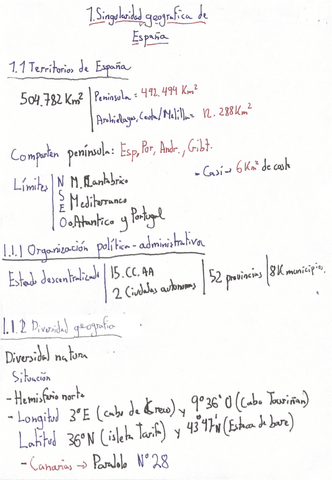 1. Singularidad geografica de
España
1.1 Territorios de España
504.782 Km² Peninsula = 492.494 Km²
Archipielagos, Ceuta/Melilla = 12.288 Km²
Comparten península: Esp, Por, Andr., Gibt.
- Casi → 6 Km² de costa
Límites N M. Cantabrico
S Mediterraneo
E
O o. Atlantico y Portugal
1.1.1 Organización política-administrativa
Estado descentralizado 15. CC.AA 52 provincias 8K municipios
2 Ciudades autonomas
1.1.2 Diversidad geografica
Diversidad natura
Situación
- Hemisferio norte
- Longitud 3º E (cabo de Creus) y 9º36' O (Cabo Touriñan)
Latitud 36º N (isleta Tarifa) y 43º47' N (Estaca de bare)
- Canarias → Paralelo Nº 28